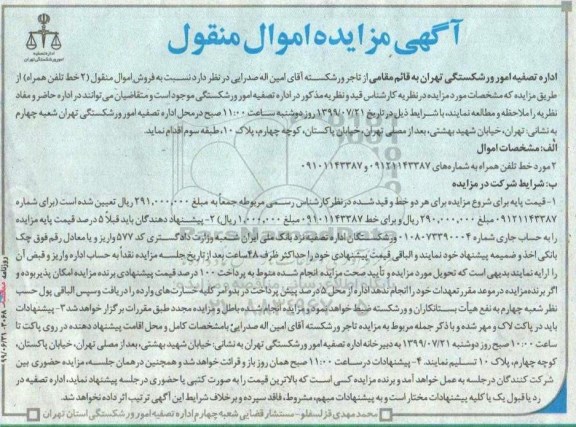 آگهی مزایده اموال منقول
اداره تصفیه
امور ورشکستگی تهران
اداره تصفیه امور ورشکستگی تهران به قائم مقامی از تاجر ورشکسته آقای امین اله صدرایی در نظر دارد نسبت به فروش اموال منقول (۲ خط تلفن همراه) از
طریق مزایده که مشخصات مورد مزایده در نظریه کارشناس قید و نظریه مذکور در اداره تصفیه امور ورشکستگی موجود است و متقاضیان می‌توانند در اداره حاضر و مفاد
نظریه را ملاحظه و مطالعه نمایند، با شرایط ذیل در تاریخ ۱۳۹۹/۰۷/۲۱ روز دوشنبه ساعت ۱۱:۰۰ صبح در محل اداره تصفیه امور ورشکستگی تهران شعبه چهارم
به نشانی: تهران، خیابان شهید بهشتی، بعد از مصلی تهران، خیابان پاکستان، کوچه چهارم، پلاک ۱۰، طبقه سوم اقدام نماید.
الف: مشخصات اموال
۲ مورد خط تلفن همراه به شماره‌های ۰۹۱۲۱۱۴۳۳۸۷ و ۰۹۱۰۱۱۴۳۳۸۷
ب: شرایط شرکت در مزایده
۱- قیمت پایه برای شروع مزایده برای هر دو خط و قید شده در نظر کارشناس رسمی مربوطه جمعاً به مبلغ ۲۹۱,۰۰۰,۰۰۰ ریال تعیین شده است (برای شماره
۰۹۱۲۱۱۴۳۳۸۷ مبلغ ۲۹۰,۰۰۰,۰۰۰ ریال و برای خط ۰۹۱۰۱۱۴۳۳۸۷ مبلغ ۱,۰۰۰,۰۰۰ ریال) ۲- پیشنهاد دهندگان باید قبلاً ۵ درصد قیمت پایه مزایده
را به حساب جاری شماره ۰۱۰۸۰۷۳۳۹۰۰۰۴ ورشکستگان اداره تصفیه نزد بانک ملی ایران شعبه وزارت دادگستری کد ۵۷۷ واریز و یا معادل رقم فوق چک
بانکی اخذ و ضمیمه پیشنهاد خود نمایند و الباقی قیمت پیشنهادی خود را حداکثر ظرف ۴۸ ساعت بعد از تاریخ جلسه مزایده نقداً به حساب اداره واریز و قبض آن
را ارایه نمایند بدیهی است که تحویل مورد مزایده و تأیید صحت مزایده انجام شده منوط به پرداخت ۱۰۰ درصد قیمت پیشنهادی برنده مزایده امکان پذیر بوده و
اگر برنده مزایده در موعد مقرر تعهدات خود را انجام ندهد اداره از محل ۵ درصد پیش پرداخت در بدو امر کلیه خسارت‌های وارده را دریافت و سپس الباقی پول حسب
نظر شعبه چهارم به نفع هیأت بستانکاران و ورشکسته ضبط خواهد نمود و مزایده انجام شده باطل و مزایده مجدد طبق مقررات برگزار خواهد شد ۳- پیشنهادات
باید در پاکت لاک و مهر شده و با ذکر جمله مربوط به مزایده تاجر ورشکسته آقای امین اله صدرایی با مشخصات کامل و محل اقامت پیشنهاد دهنده در روی پاکت تا
ساعت ۱۰:۰۰ صبح روز دوشنبه ۱۳۹۹/۰۷/۲۱ به دبیرخانه اداره تصفیه امور ورشکستگی تهران به نشانی: خیابان شهید بهشتی، بعد از مصلی تهران، خیابان پاکستان،
کوچه چهارم، پلاک ۱۰ تسلیم نمایند. ۴- پیشنهادات در ساعت ۱۱:۰۰ صبح همان روز باز و قرائت خواهد شد و همچنین در همان جلسه، مزایده حضوری بین
شرکت کنندگان در جلسه به عمل خواهد آمد و برنده مزایده کسی است که بالاترین قیمت را به صورت کتبی یا حضوری در جلسه پیشنهاد نماید، اداره تصفیه در
رد یا قبول یک یا کلیه پیشنهادات مختار است و به پیشنهادات مبهم، مشروط، فاقد سپرده و بر خلاف شرایط این آگهی ترتیب اثر داده نخواهد شد.
محمد مهدی قزلسفلو - مستشار قضایی شعبه چهارم اداره تصفیه امور ورشکستگی استان تهران
ParsNamadData